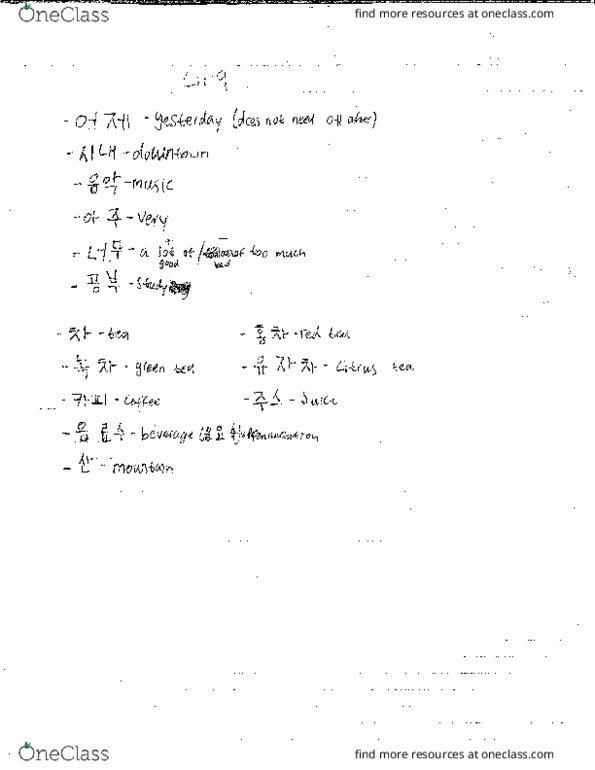 OneClass
find more resources at oneclass.com
Ch 9
- 어제 - yesterday (does not need 에 after)
- 시내 - downtown
- 음악 - music
- 아주 - very
- 너무 - a lot of / of too much
good bad
- 공부 - study
- 차 - tea
- 홍차 - red tea
- 녹차 - green tea
- 유자차 - citrus tea
- 커피 - coffee
- 주스 - Juice
- 음료수 - beverage
- 산 - mountain
OneClass
find more resources at oneclass.com